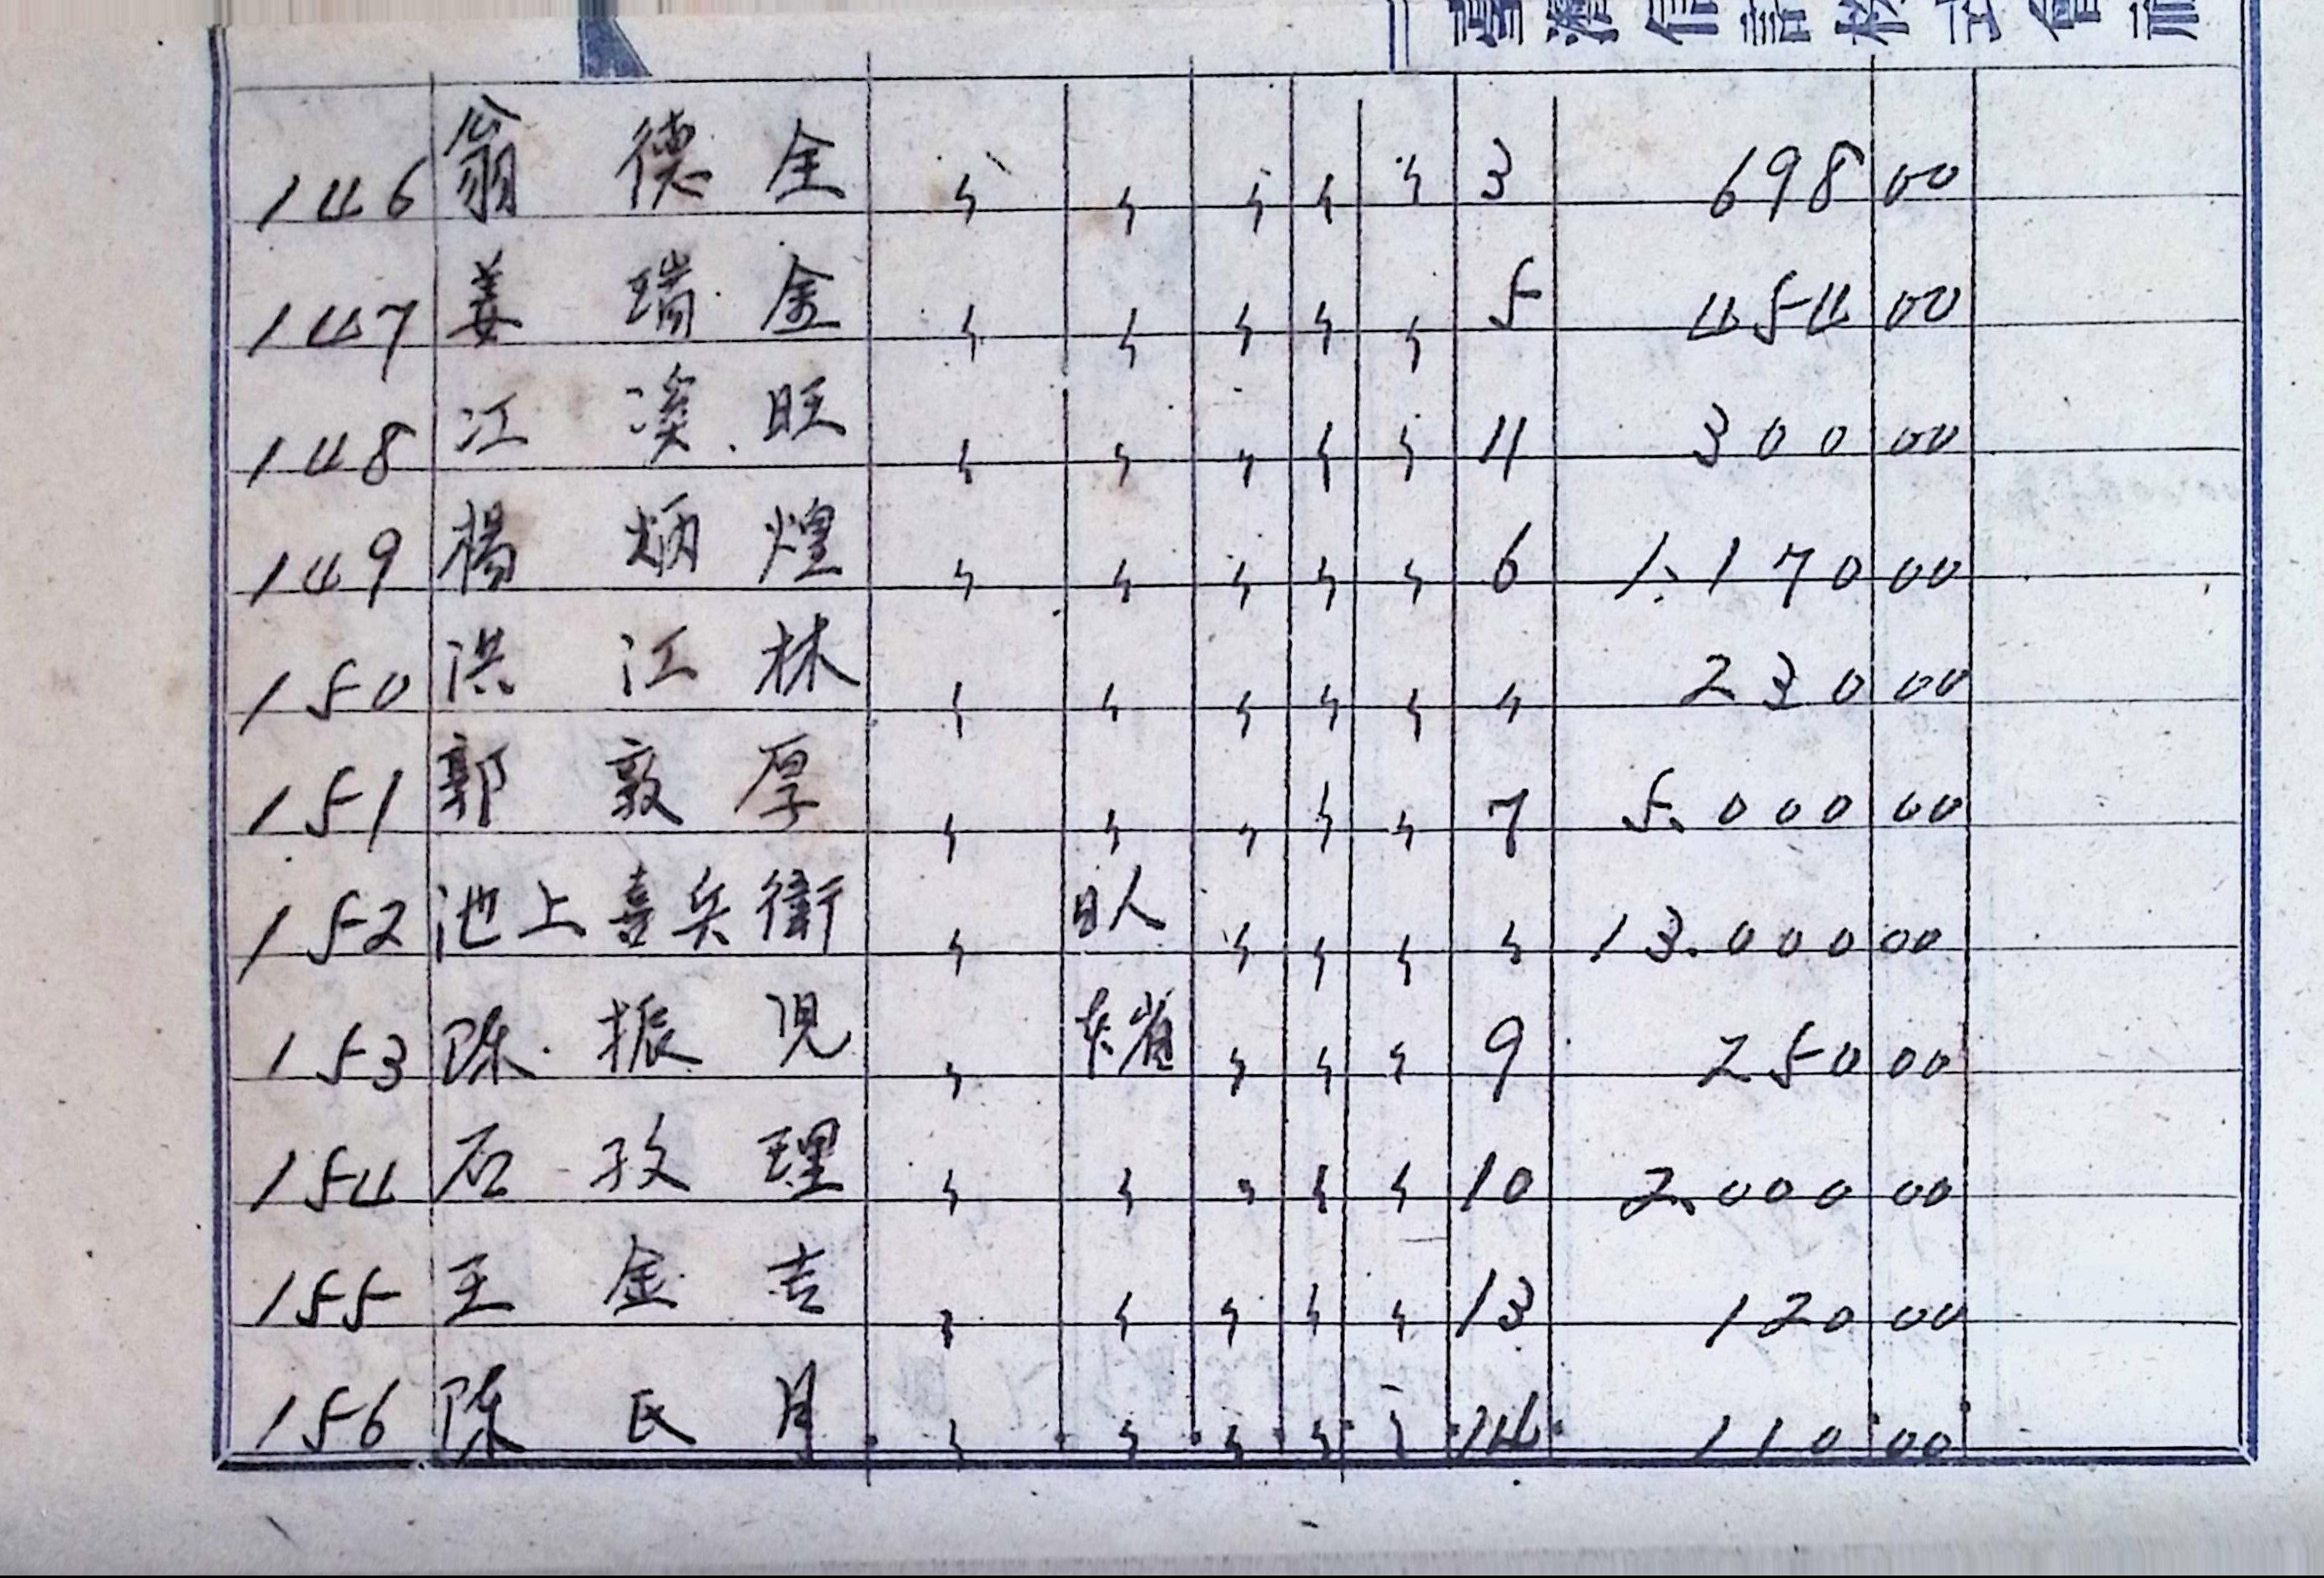 臺灣信託株式會社
146 翁德全 〃 〃 〃 〃 〃 3 698 00
147 姜瑞金 〃 〃 〃 〃 〃 5 454 00
148 江溪旺 〃 〃 〃 〃 〃 11 300 00
149 楊炳煌 〃 〃 〃 〃 〃 6 1.170 00
150 洪江林 〃 〃 〃 〃 〃 〃 230 00
151 郭敦厚 〃 〃 〃 〃 〃 7 5.000 00
152 池上喜兵衛 〃 日人 〃 〃 〃 〃 13.000 00
153 陈振児 〃 本省 〃 〃 〃 9 250 00
154 石玫理 〃 〃 〃 〃 〃 10 2.000 00
155 王金吉 〃 〃 〃 〃 〃 13 120 00
156 陈氏月 〃 〃 〃 〃 〃 14 110 00